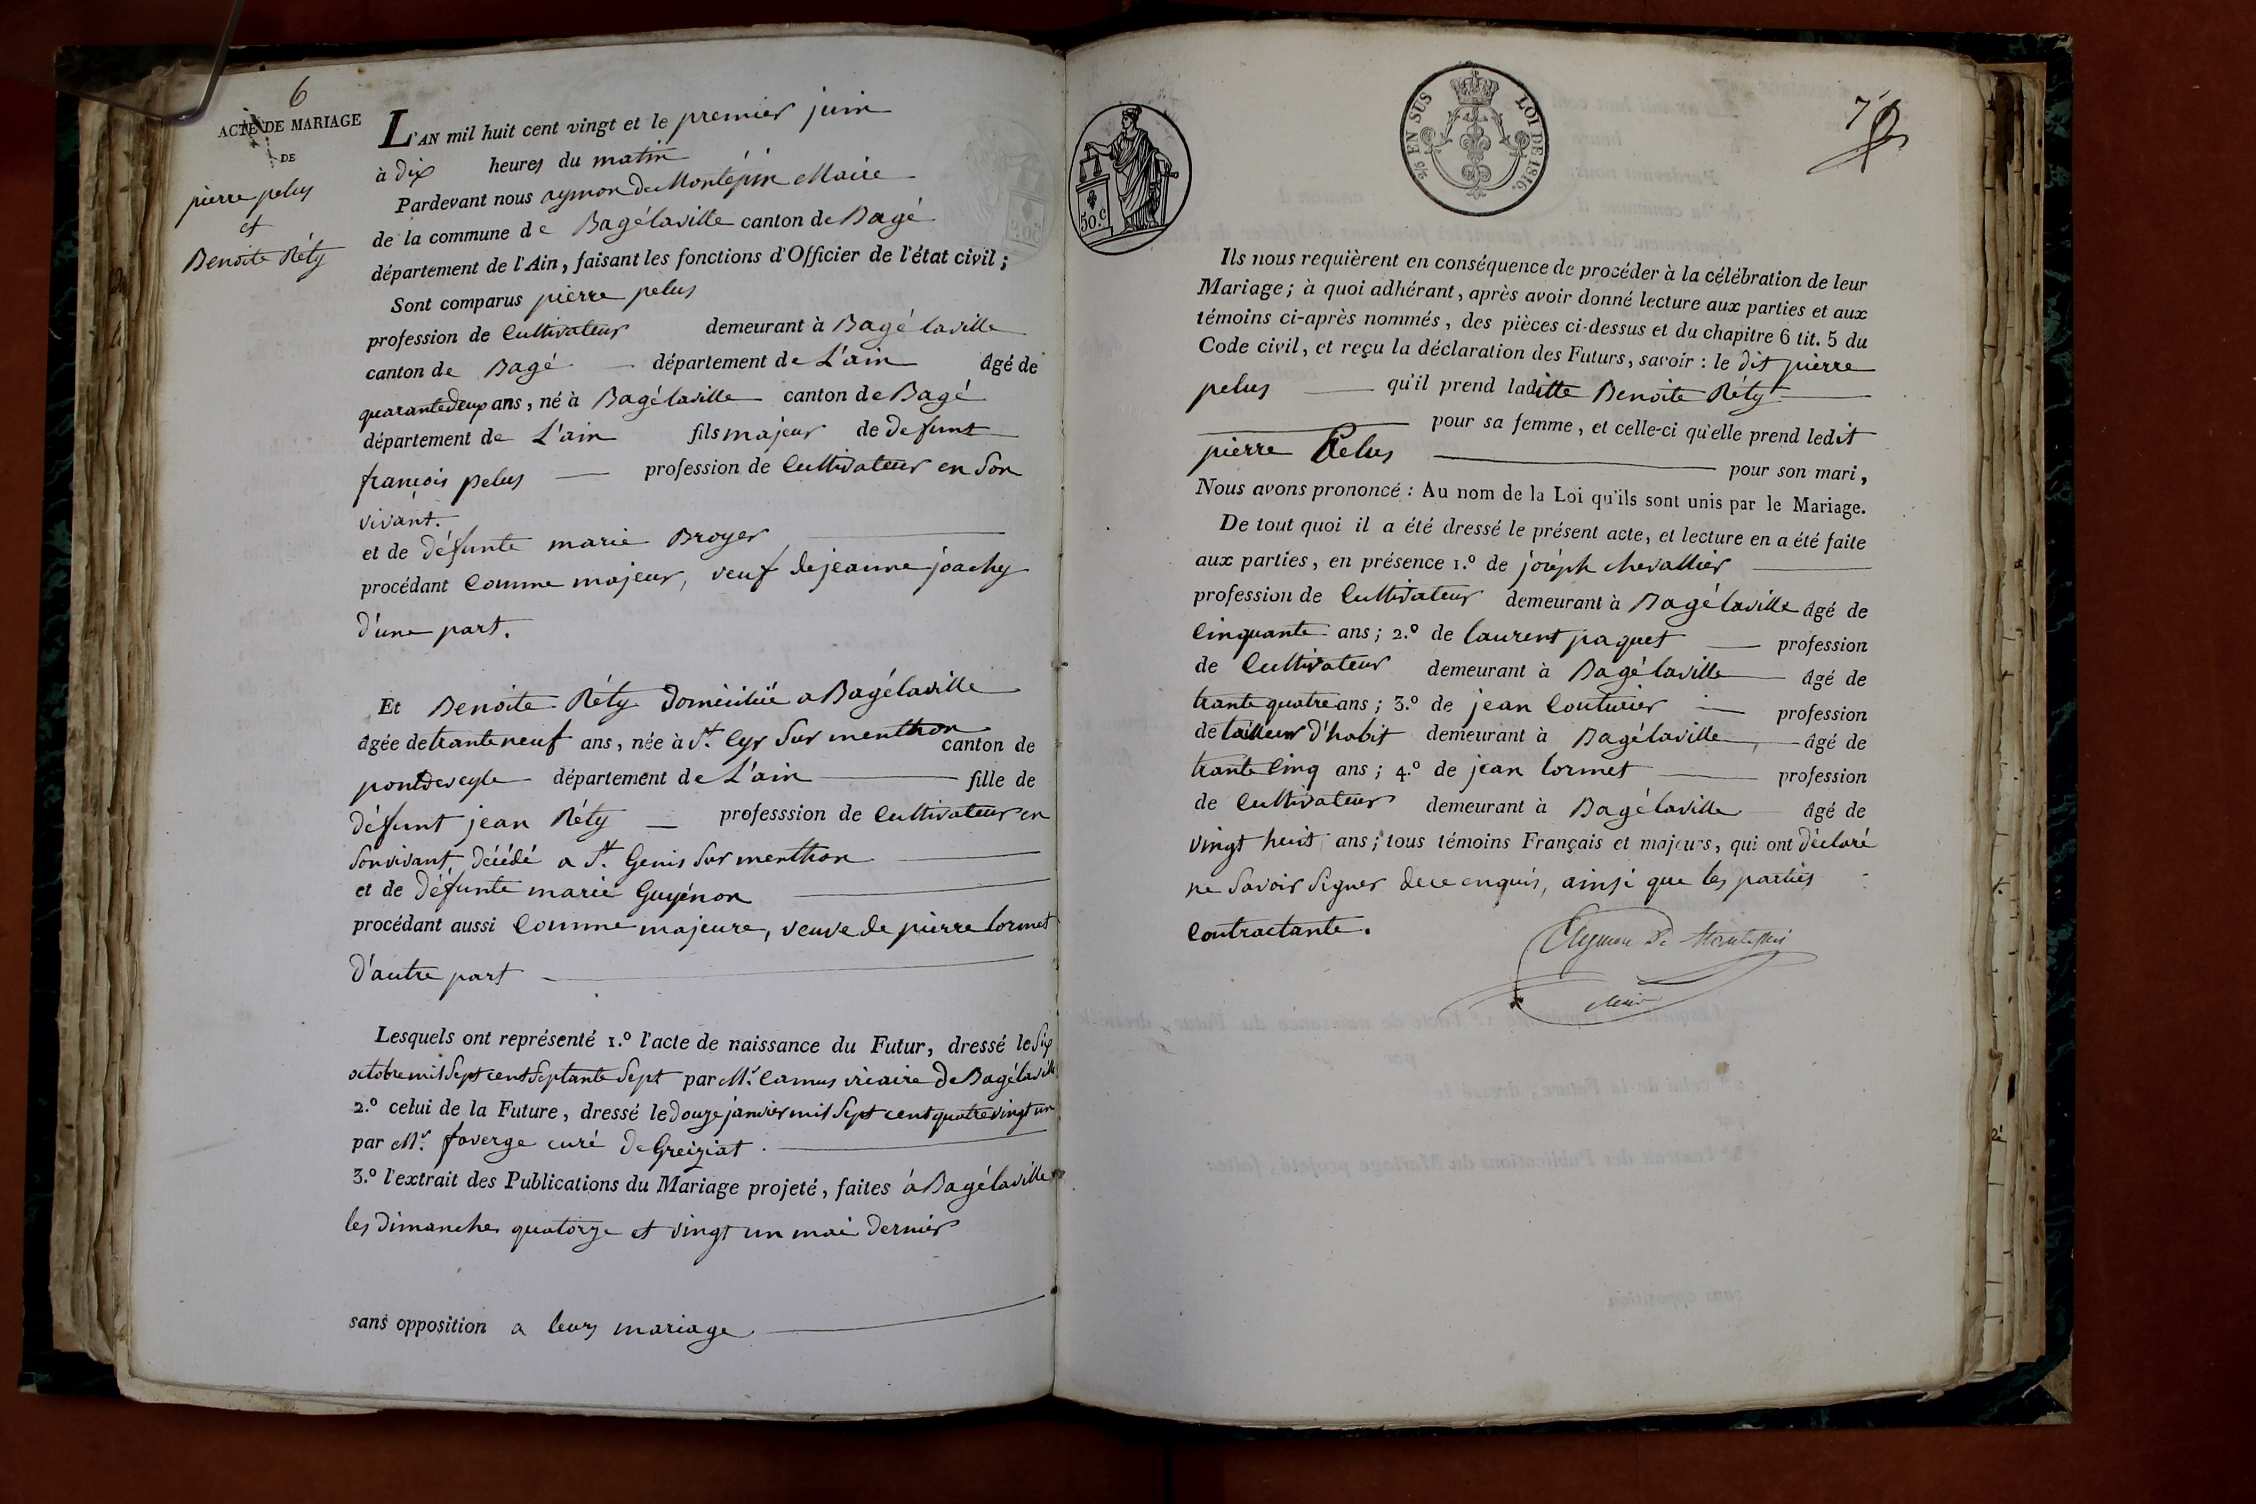 6
ACTE DE MARIAGE
DE
pierre pelus
et
Benoite Réty
L'AN mil huit cent vingt et le premier juin
à dix heures du matin
Pardevant nous aymon de Montépin Maire
de la commune de Bagélaville canton de Bagé
département de l'Ain, faisant les fonctions d'Officier de l'état civil;
Sont comparus pierre pelus
profession de Cultivateur demeurant à Bagé laville
canton de Bagé département de L'ain âgé de
quarantedeux ans, né à Bagélaville canton de Bagé
département de L'ain fils majeur de defunt
francois pelus profession de Cultivateur en son
vivant.
et de défunte marie Broyer
procédant Comme majeur, veuf de jeanne joachy
d'une part.
Et Benoite Réty domiciliée a Bagélaville
âgée de trante neuf ans, née à St. Cyr sur menthon canton de
pontdeveyle département de L'ain fille de
défunt jean Réty professsion de Cultivateur en
son vivant, décédé a St. Genis sur menthon
et de défunte marie Guyénon
procédant aussi Comme majeure, veuve de pierre lormet
d'autre part
Lesquels ont représenté 1.º l'acte de naissance du Futur, dressé le six
octobre mil sept cent septante sept par Mr. Camus vicaire de Bagélaville
2.º celui de la Future, dressé le douze janvier mil sept cent quatre vingt un
par Mr. faverge curé de Greiziat.
3.º l'extrait des Publications du Mariage projeté, faites à Bagélaville
les dimanches quatorze et vingt un mai dernier
sans opposition a leurs mariage
50.c
EN SUS LOI DE 1816.
7
Ils nous requièrent en conséquence de procéder à la célébration de leur
Mariage; à quoi adhérant, après avoir donné lecture aux parties et aux
témoins ci-après nommés, des pièces ci-dessus et du chapitre 6 tit. 5 du
Code civil, et reçu la déclaration des Futurs, savoir: le dit pierre
pelus qu'il prend laditte Benoite Réty
pour sa femme, et celle-ci qu'elle prend ledit
pierre Pelus pour son mari,
Nous avons prononcé: Au nom de la Loi qu'ils sont unis par le Mariage.
De tout quoi il a été dressé le présent acte, et lecture en a été faite
aux parties, en présence 1.º de joséph chevallier
profession de Cultivateur demeurant à Bagélaville âgé de
Cinquante ans; 2.º de laurent paquet profession
de Cultivateur demeurant à Bagélaville âgé de
trante quatre ans; 3.º de jean Couturier profession
de tailleur d'habit demeurant à Bagélaville, âgé de
trante Cinq ans; 4.º de jean lormet profession
de Cultivateur demeurant à Bagélaville âgé de
vingt huit ans; tous témoins Français et majeurs, qui ont déclaré
ne savoir signer de ce enquis, ainsi que les parties
Contractante.
Aymon De Montépin
Maire